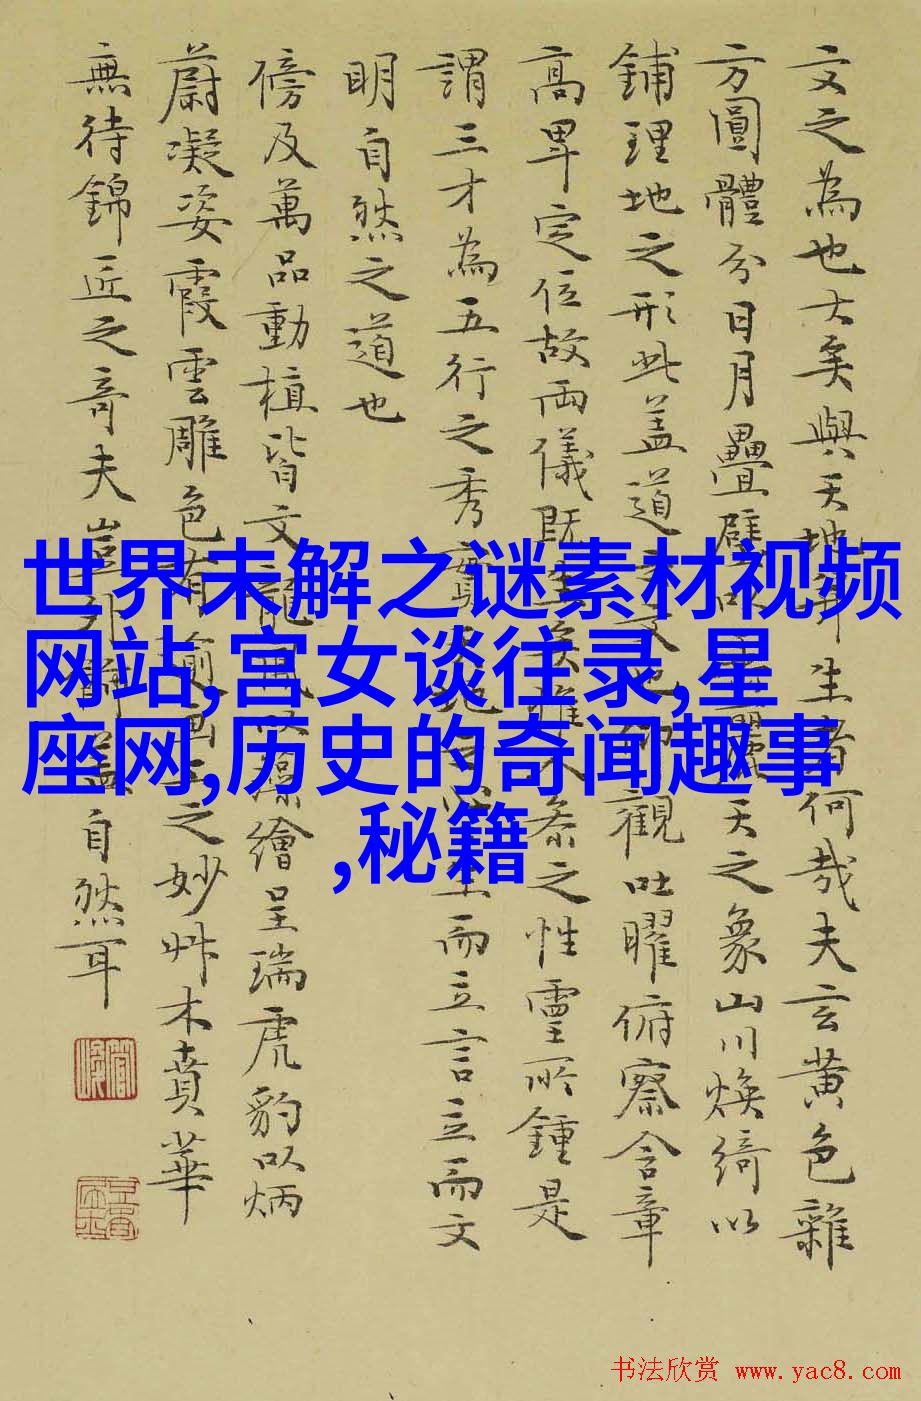 文之為也大矣與天地并生者何哉夫玄黃色雜
方圓體分日月疊璧垂麗天之象山川煥綺以
鋪理地之形此盖道之文也仰觀吐曜俯察含章
高卑定位故兩儀既生矣惟人参之性靈所鍾是
謂三才為五行之秀實天地心生而立言立而文
明自然之道也
傍及萬品動植皆文龍鳳以藻繪呈瑞虎豹以炳
蔚凝姿霞雲雕色有踰畫工之妙艸木賁華
無待錦匠之奇夫豈外飾盖自然耳
世界未解之谜素材视频
网站,宫女谈往录,星
座网,历史的奇闻趣事
,秘籍
书法欣赏 www.yac8.com